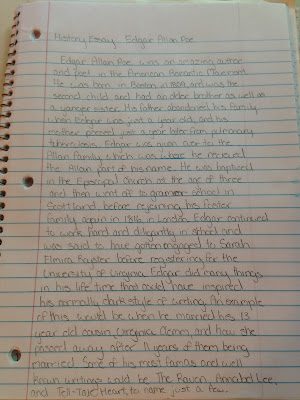 History Essay: Edgar Allan Poe
Edgar Allan Poe was an amazing author
and poet in the American Romantic Movement.
He was born in Boston in 1809, and was the
second child and had an older brother as well as
a younger sister. His father abandoned his family
when Edgar was just a year old, and his
mother passed just a year later from pulmonary
tuberculosis. Edgar was given over to the
Allan family which was where he received
the Allan part of his name. He was baptized
in the Episcopal Church at the age of three
and then went off to grammar school in
Scotland before rejoining his foster
family again in 1816 in London. Edgar continued
to work hard and diligently in school and
was said to have gotten engaged to Sarah
Elmira Royster before registering for the
University of Virginia. Edgar did many things
in his life time that could have inspired
his normally dark style of writing. An example
of this would be when he married his 13
year old cousin, Virginia Clemm, and how she
passed away after 11 years of them being
married. Some of his most famous and well
known writings could be The Raven, Annabel Lee,
and Tell-Tale Heart, to name just a few.